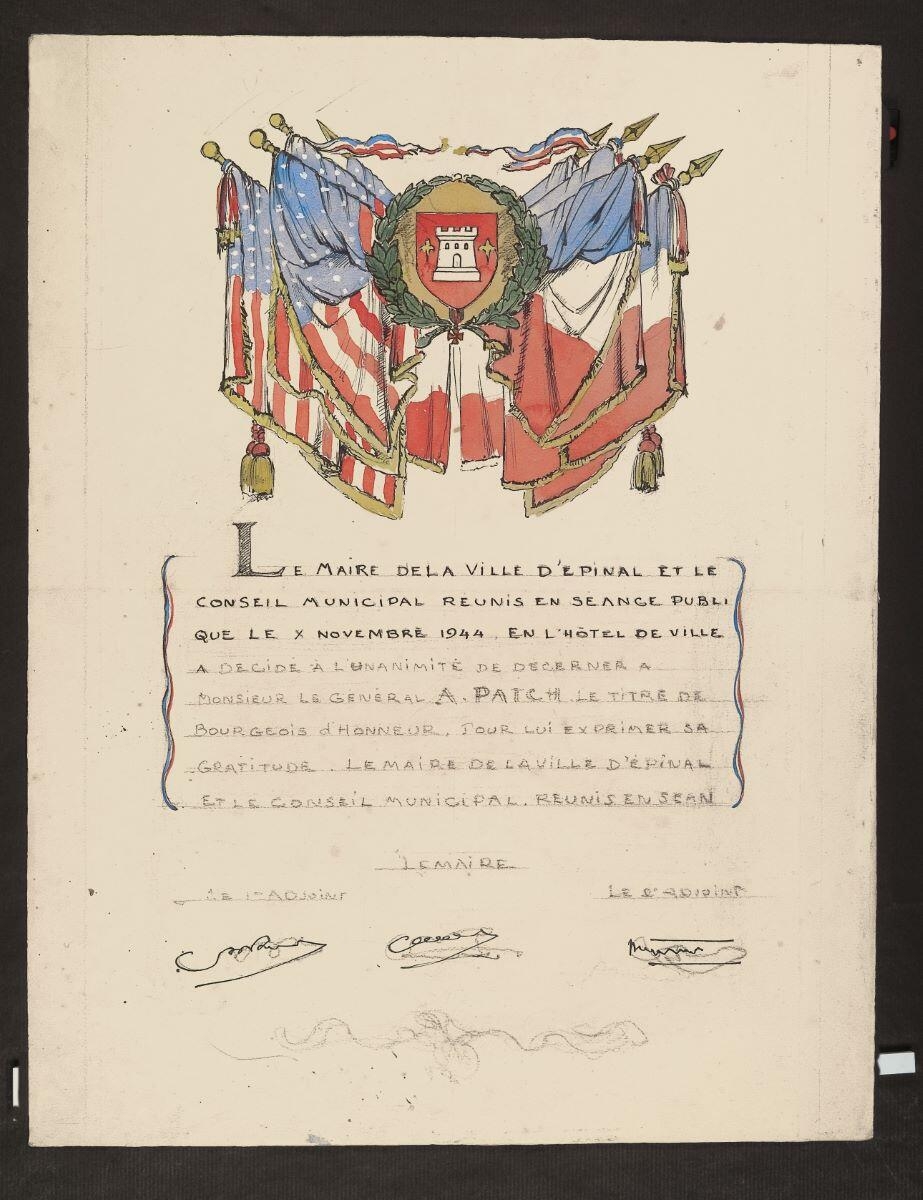 LE MAIRE DE LA VILLE D'ÉPINAL ET LE
CONSEIL MUNICIPAL REUNIS EN SEANCE PUBLI
QUE LE X NOVEMBRE 1944, EN L'HÔTEL DE VILLE
A DECIDE À L'UNANIMITÉ DE DECERNER A
MONSIEUR LE GENÉRAL A. PATCH LE TITRE DE
BOURGEOIS d'HONNEUR, POUR LUI EXPRIMER SA
GRATITUDE. LE MAIRE DE LA VILLE D'ÉPINAL
ET LE CONSEIL MUNICIPAL. REUNIS EN SEAN
LE MAIRE
LE 1er ADJOINT LE 2e ADJOINT